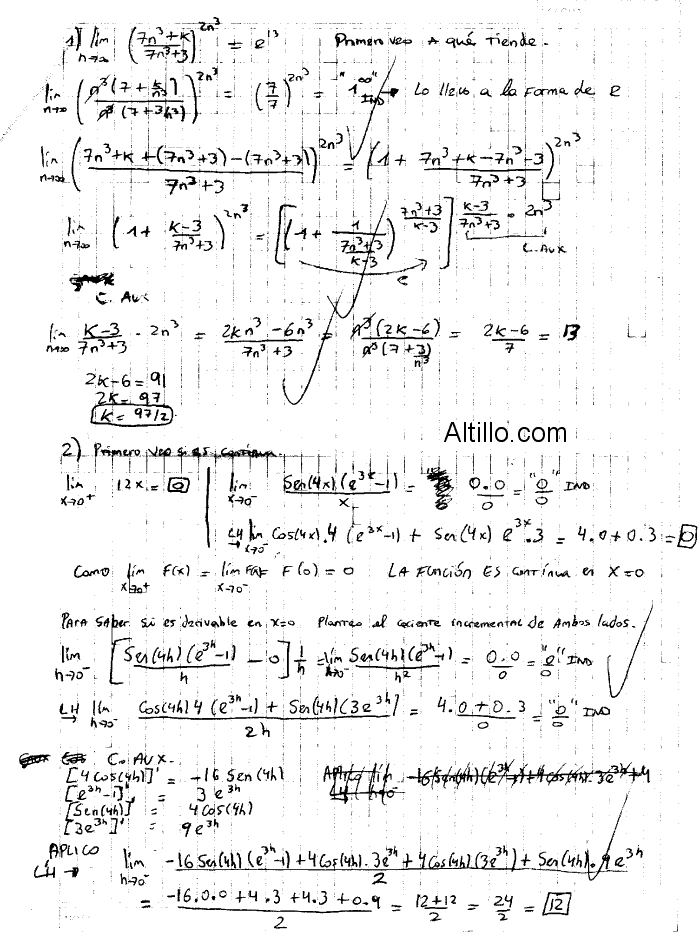 1) lim n→∞ ((7n³+k)/(7n³+3))^(2n³) = e^13 Primero veo a qué tiende.
lim n→∞ ((n³(7+k/n³))/(n³(7+3/n³)))^(2n³) = (7/7)^(2n³) = "1^∞" IND → Lo llevo a la forma de e
lim n→∞ ((7n³+k+(7n³+3)-(7n³+3))/(7n³+3))^(2n³) = (1 + (7n³+k-7n³-3)/(7n³+3))^(2n³)
lim n→∞ (1 + (k-3)/(7n³+3))^(2n³) = [(1 + 1/((7n³+3)/(k-3)))^((7n³+3)/(k-3))]^((k-3)/(7n³+3) · 2n³)
e C. Aux
C. Aux
lim n→∞ (k-3)/(7n³+3) · 2n³ = (2kn³-6n³)/(7n³+3) = (n³(2k-6))/(n³(7+3/n³)) = (2k-6)/7 = 13
2k-6=91
2k=97
k=97/2
Altillo.com
2) Primero veo si es continua.
lim x→0⁺ 12x = 0 | lim x→0⁻ (Sen(4x)(e^(3x)-1))/x = 0.0/0 = "0/0" IND
LH → lim x→0⁻ Cos(4x).4(e^(3x)-1) + Sen(4x) e^(3x).3 = 4.0+0.3 = 0
Como lim x→0⁺ F(x) = lim x→0⁻ F(x) = F(0) = 0 LA FUNCIÓN ES CONTINUA en X=0
PARA SABER si es derivable en x=0 Planteo el cociente incremental de Ambos lados.
lim h→0⁻ [(Sen(4h)(e^(3h)-1))/h - 0] 1/h = lim h→0⁻ (Sen(4h)(e^(3h)-1))/h² = 0.0/0 = "0/0" IND
LH → lim h→0⁻ (Cos(4h)4(e^(3h)-1) + Sen(4h)(3e^(3h)))/2h = (4.0+0.3)/0 = "0/0" IND
C. AUX.
[4Cos(4h)]' = -16 Sen(4h)
[e^(3h)-1]' = 3e^(3h)
[Sen(4h)]' = 4Cos(4h)
[3e^(3h)]' = 9e^(3h)
APLICO LH → lim h→0⁻ (-16Sen(4h)(e^(3h)-1)+4Cos(4h).3e^(3h)+4Cos(4h)(3e^(3h))+Sen(4h).9e^(3h))/2
= (-16.0.0+4.3+4.3+0.9)/2 = (12+12)/2 = 24/2 = 12